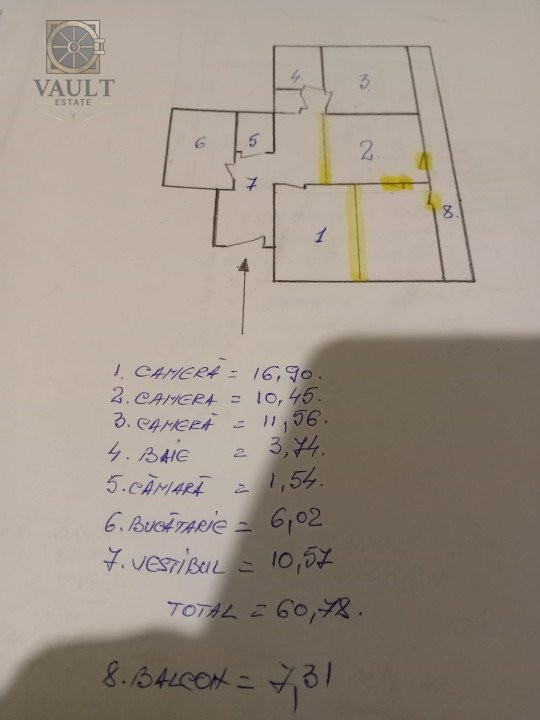 VAULT
ESTATE
4
3
6
5
2
7
1
8.
1. CAMERĂ = 16,90.
2. CAMERA = 10,45.
3. CAMERĂ = 11,56.
4. BAIE = 3,74.
5. CĂMARĂ = 1,54.
6. BUCĂTARIE = 6,02
7. VESTIBUL = 10,57
TOTAL = 60,78.
8. BALCON = 7,31